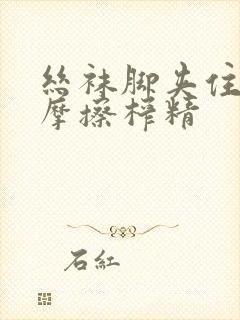 丝袜脚夹住
摩擦榨精
石紅